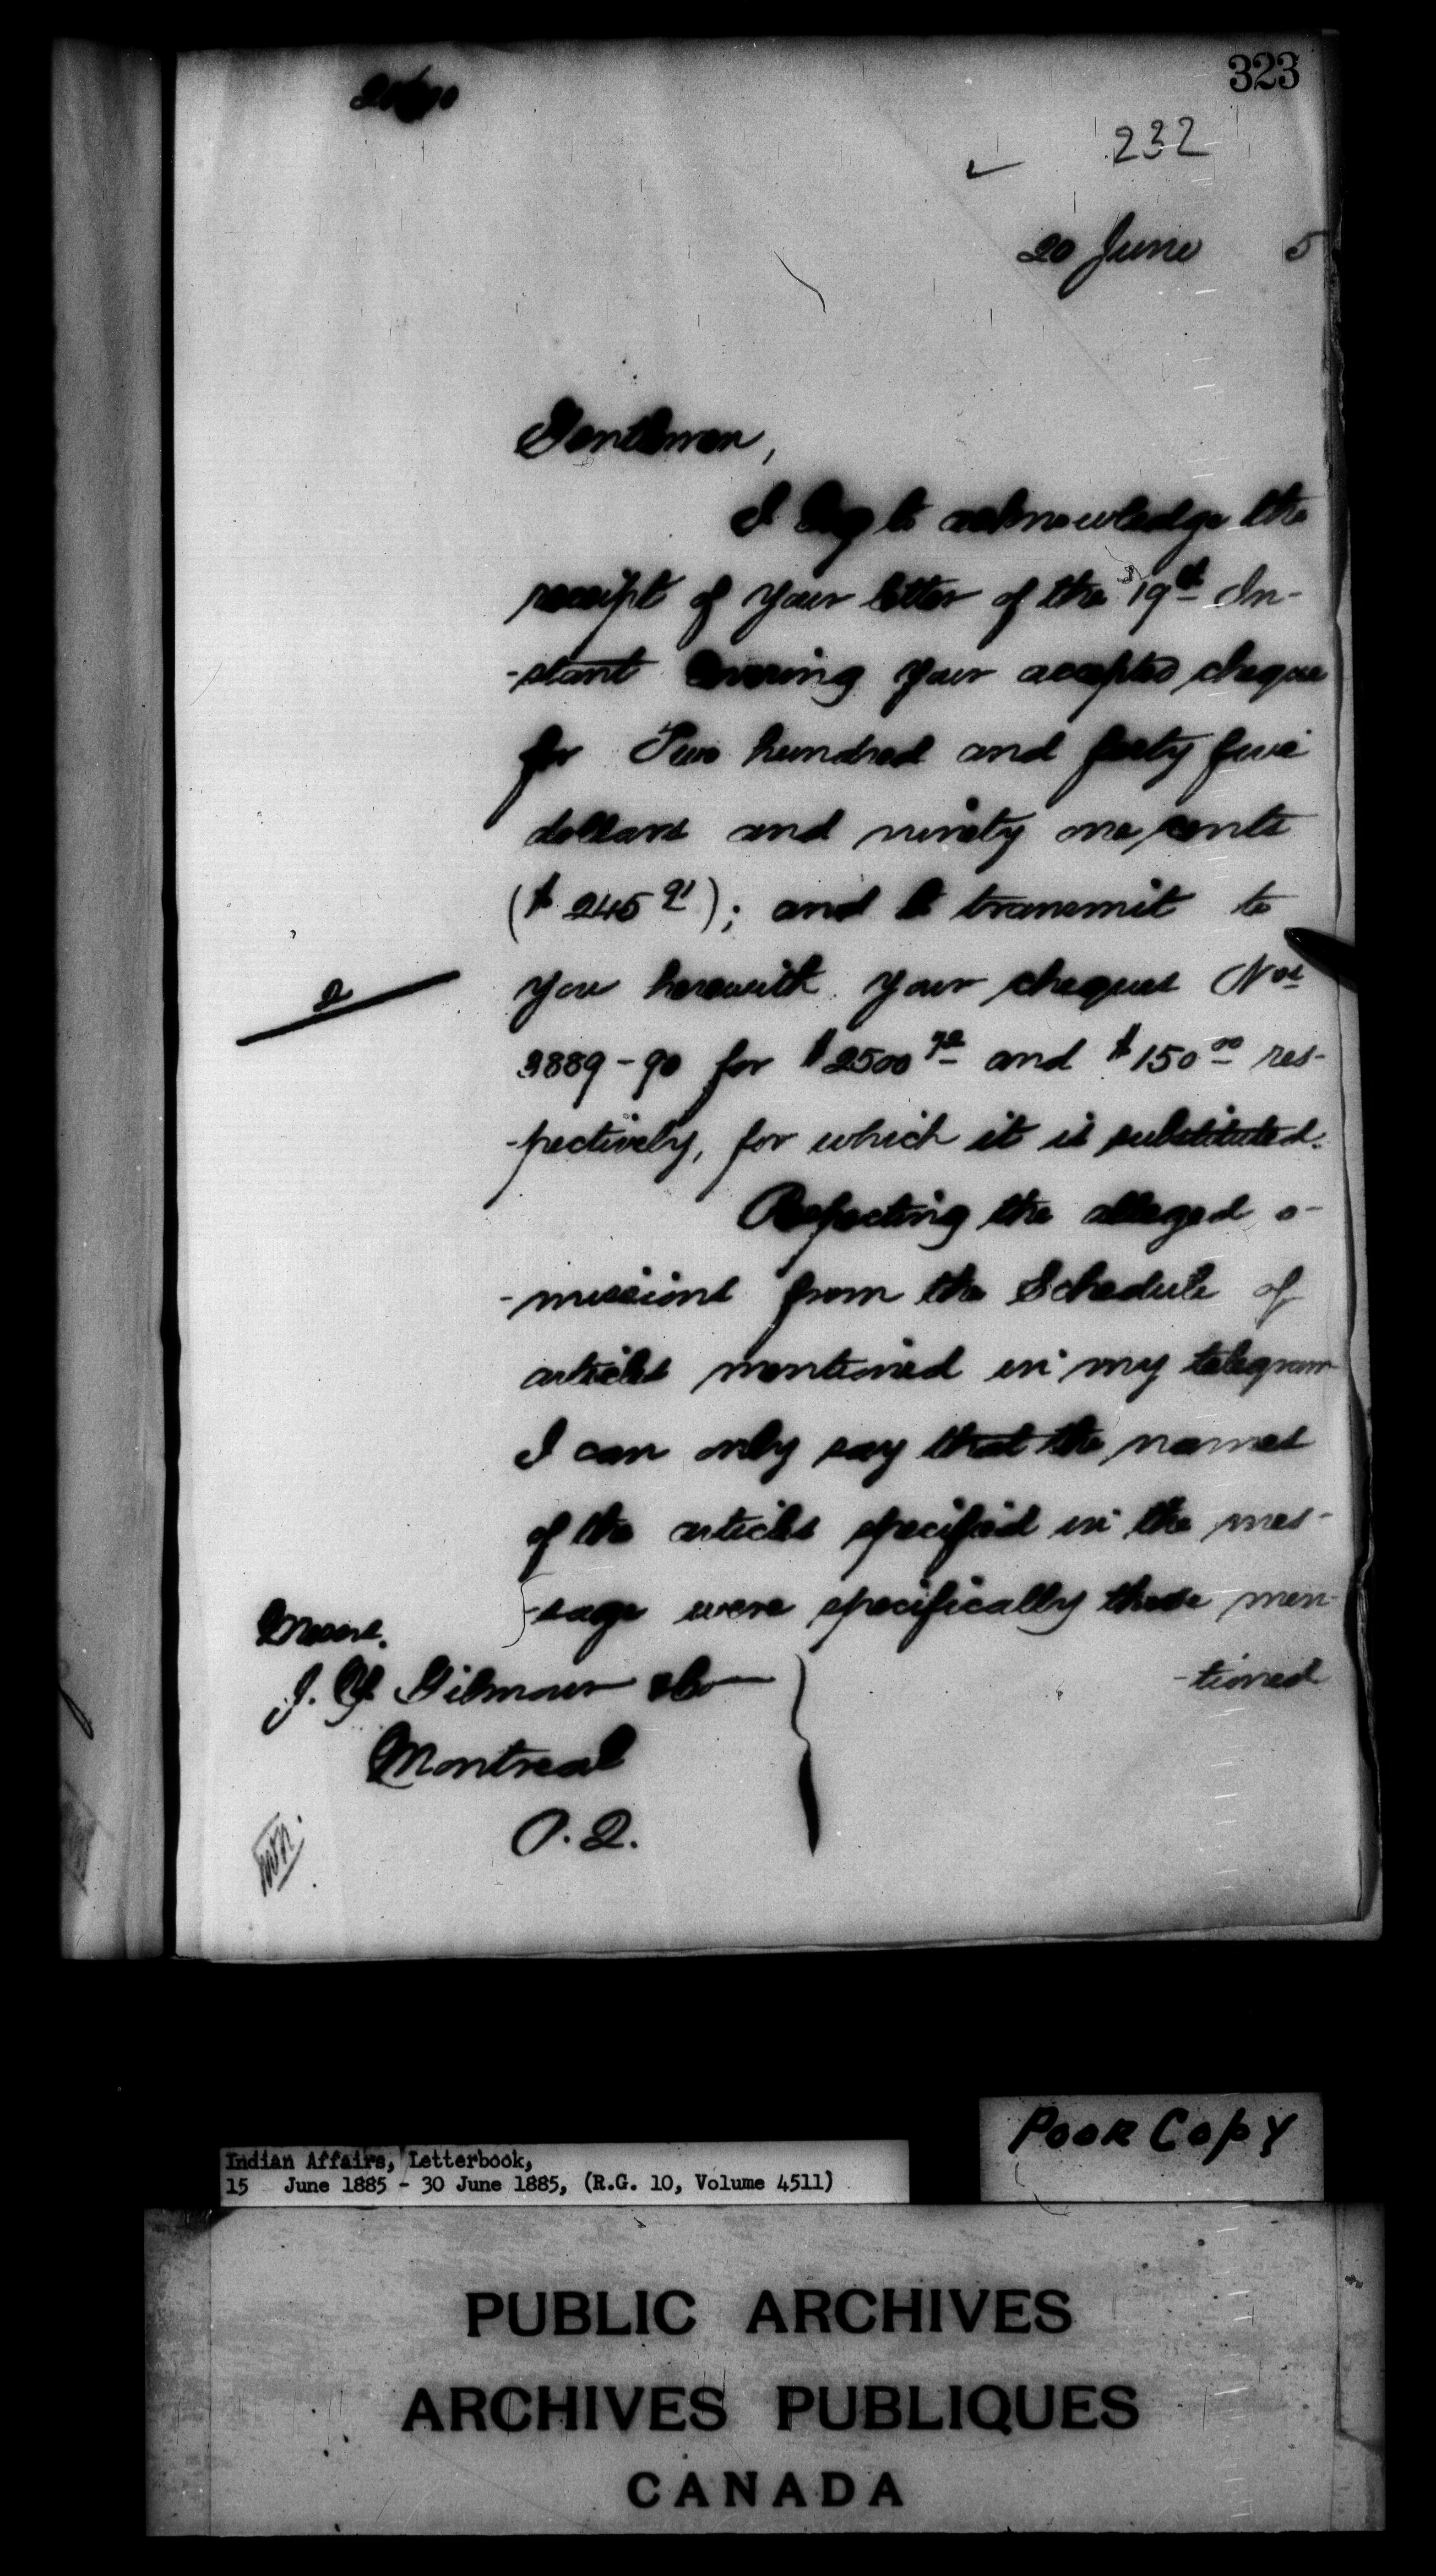 323
232
20 June 5
Gentlemen,
I beg to acknowledge the
receipt of your letter of the 19th In-
-stant covering your accepted cheque
for Two hundred and forty five
dollars and ninety one cents
($245 91); and to transmit to
2
you herewith your cheques Nos
3889-90 for $2500 and $150 00 res-
-pectively, for which it is substituted.
Respecting the alleged o-
-missions from the Schedule of
articles mentioned in my telegram
I can only say that the names
of the articles specified in the mes-
-sage were specifically those men-
-tioned
Messrs.
J. Y. Gilmour & Co
Montreal
P.Q.
Poor Copy
Indian Affairs, Letterbook,
15 June 1885 - 30 June 1885, (R.G. 10, Volume 4511)
PUBLIC ARCHIVES
ARCHIVES PUBLIQUES
CANADA